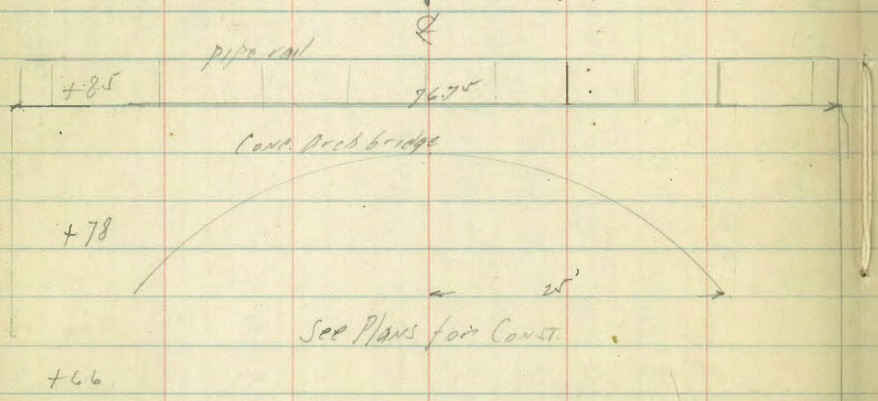 ℄
pipe rail
+85 76.75
Conc. Arch bridge
+78
25'
See Plans for Const.
+66